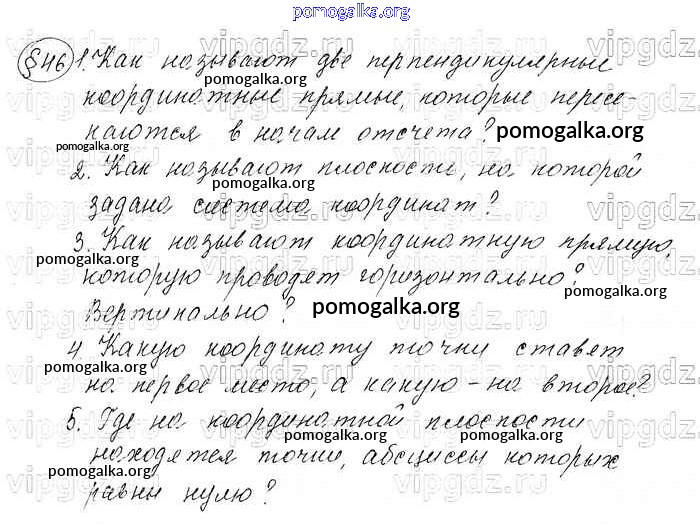 pomogalka.org
§46 1. Как называют две перпендикулярные
pomogalka.org
координатные прямые, которые пересе-
каются в начале отсчета? pomogalka.org
pomogalka.org
2. Как называют плоскость, на которой
pomogalka.org
задана система координат?
pomogalka.org
3. Как называют координатную прямую,
pomogalka.org
которую проводят горизонтально?
pomogalka.org
Вертикально? pomogalka.org
4. Какую координату точки ставят
pomogalka.org
на первое место, а какую - на второе?
pomogalka.org
5. Где на координатной плоскости
pomogalka.org pomogalka.org
находятся точки, абсциссы которых
pomogalka.org
равны нулю?